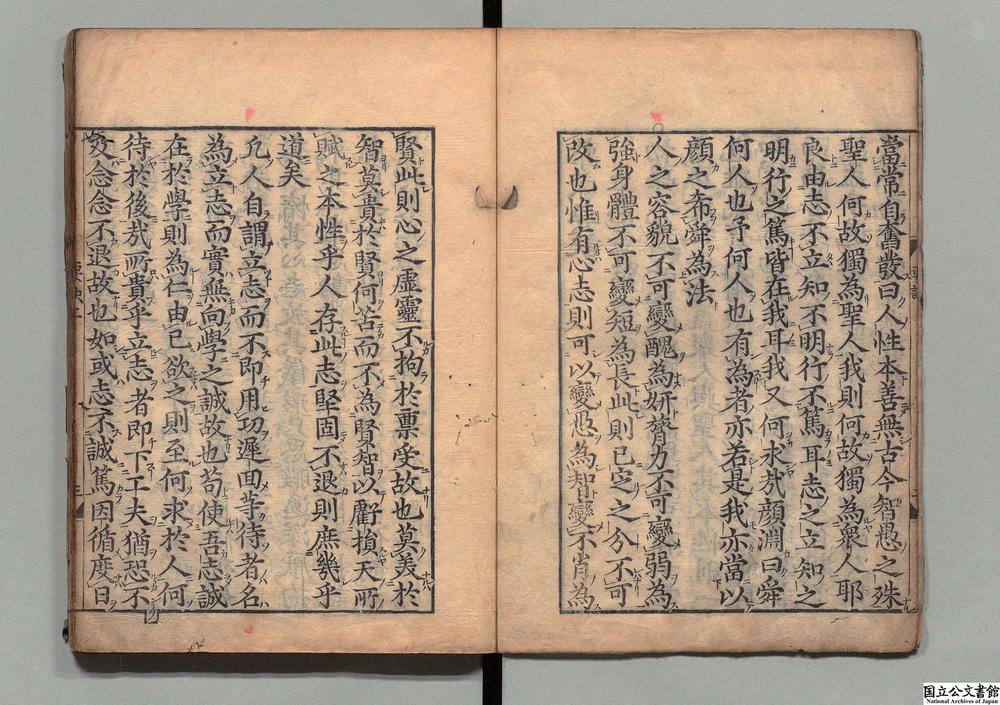 當常自奮發曰人性本善無古今智愚之殊
聖人何故獨為聖人我則何故獨為衆人耶
良由志不立知不明行不篤耳志之立知之
明行之篤皆在我耳我又何求㢤顔淵曰舜
何人也予何人也有為者亦若是我亦當以
顔之希舜為法
人之容貌不可變醜為妍膂力不可變弱為
強身體不可變短為長此則已定之分不可
改也惟有心志則可以變愚為智變不肖為
賢此則心之虚靈不拘於禀受故也莫美於
智莫貴於賢何苦而不為賢智以虧損天所
賦之本性乎人存此志堅固不退則庶幾乎
道矣
凢人自謂立志而不即用功遲回等待者名
為立志而實無向學之誠故也苟使吾志誠
在於學則為仁由已欲之則至何求於人何
待於後㢤所貴乎立志者即下工夫猶恐不
及念念不退故也如或志不誠篤因循度日
国立公文書館
National Archives of Japan